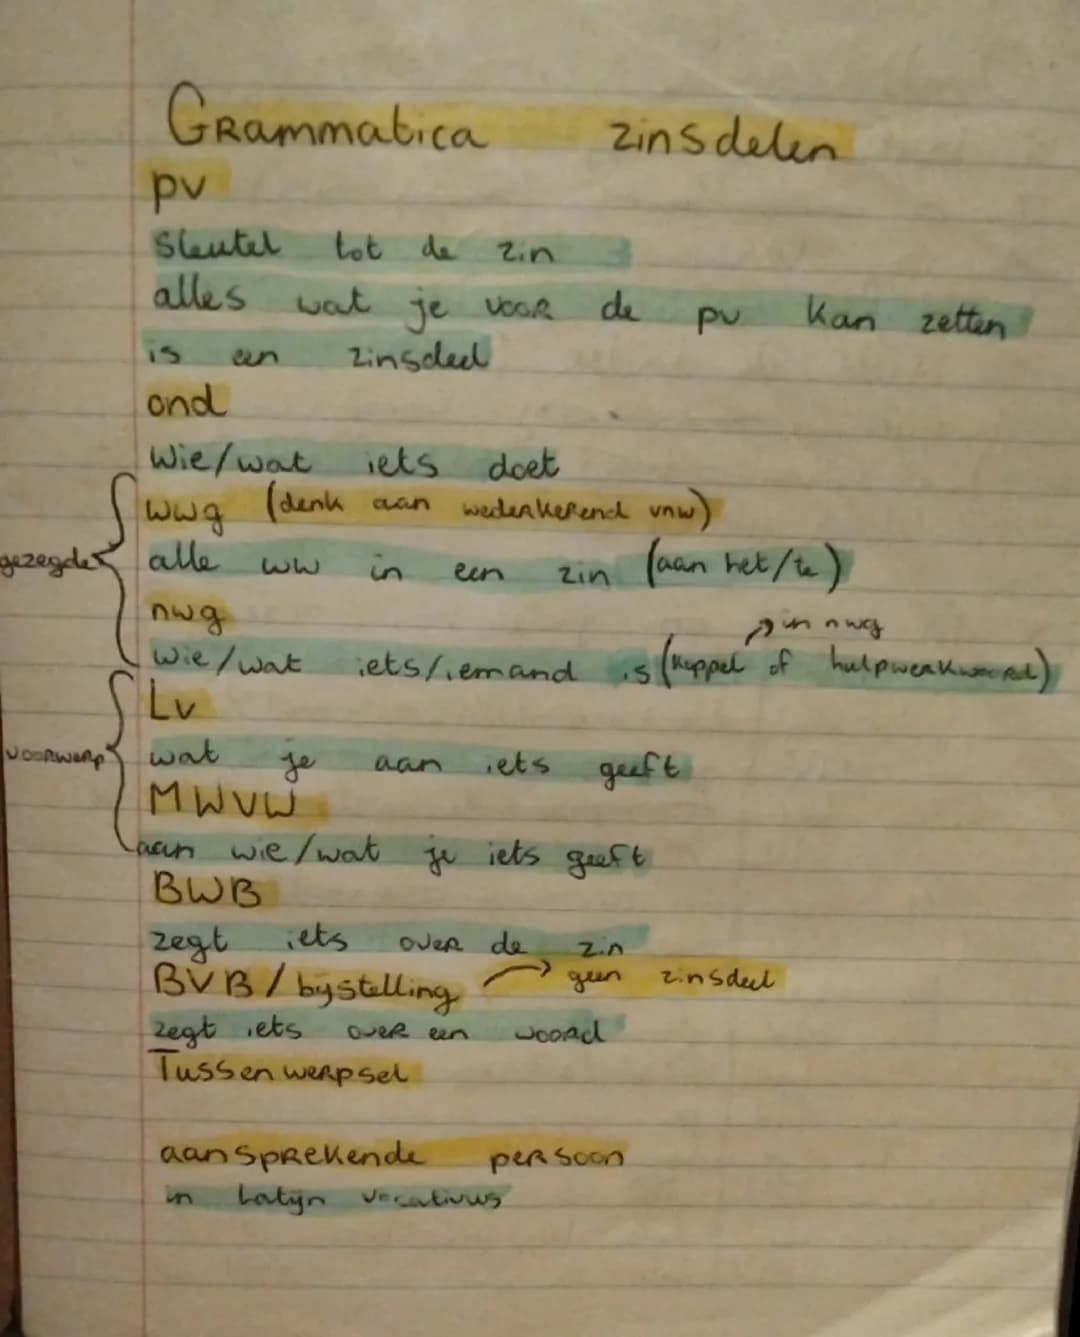 Grammatica zinsdelen
pv
Sleutel tot de zin
alles wat je voor de pv kan zetten
is een zinsdeel
ond
Wie/wat iets doet
wwg (denk aan wederkerend vnw)
gezegde
alle ww in een zin (aan het/te)
nwg
in nwg
Wie/wat iets/iemand is (koppel of hulpwerkwoord)
Lv
voorwerp
wat je aan iets geeft
MWVW
aan wie/wat je iets geeft
BWB
zegt iets over de zin
BVB/bijstelling geen zinsdeel
zegt iets over een woord
Tussenwerpsel
aansprekende persoon
in Latijn vocativus